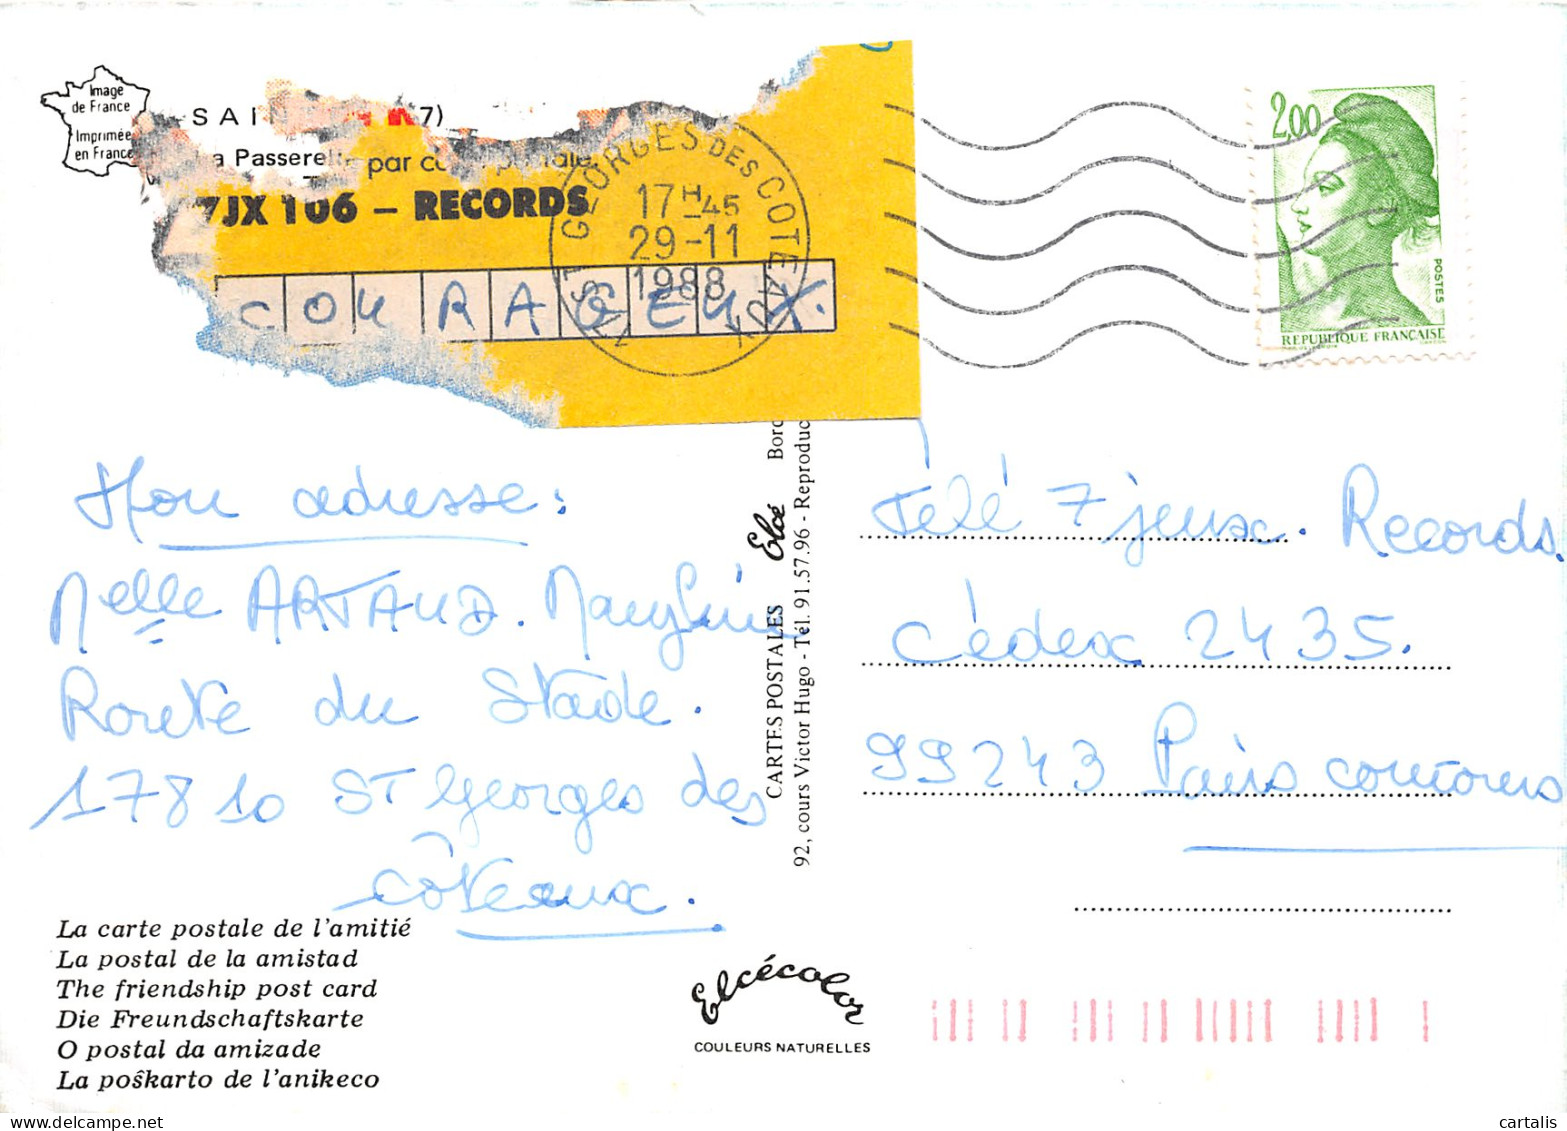 Image
de France
Imprimée
en France
SAIN 7)
a Passerelle par co
7JX 106 – RECORDS
COURAGEUX.
ST GEORGES DES COTEAUX
17H45
29-11
1988
2,00
POSTES
REPUBLIQUE FRANÇAISE
Mon adresse:
Melle ARTAUD.
Route du Stade.
17810 ST Georges des
côteaux.
La carte postale de l'amitié
La postal de la amistad
The friendship post card
Die Freundschaftskarte
O postal da amizade
La poŝkarto de l'anikeco
CARTES POSTALES Elcé
92, cours Victor Hugo - Tél. 91.57.96 - Reproduc
Elcécolor
COULEURS NATURELLES
Télé 7 jeux. Records.
Cédex 2435.
99243 Paris concours